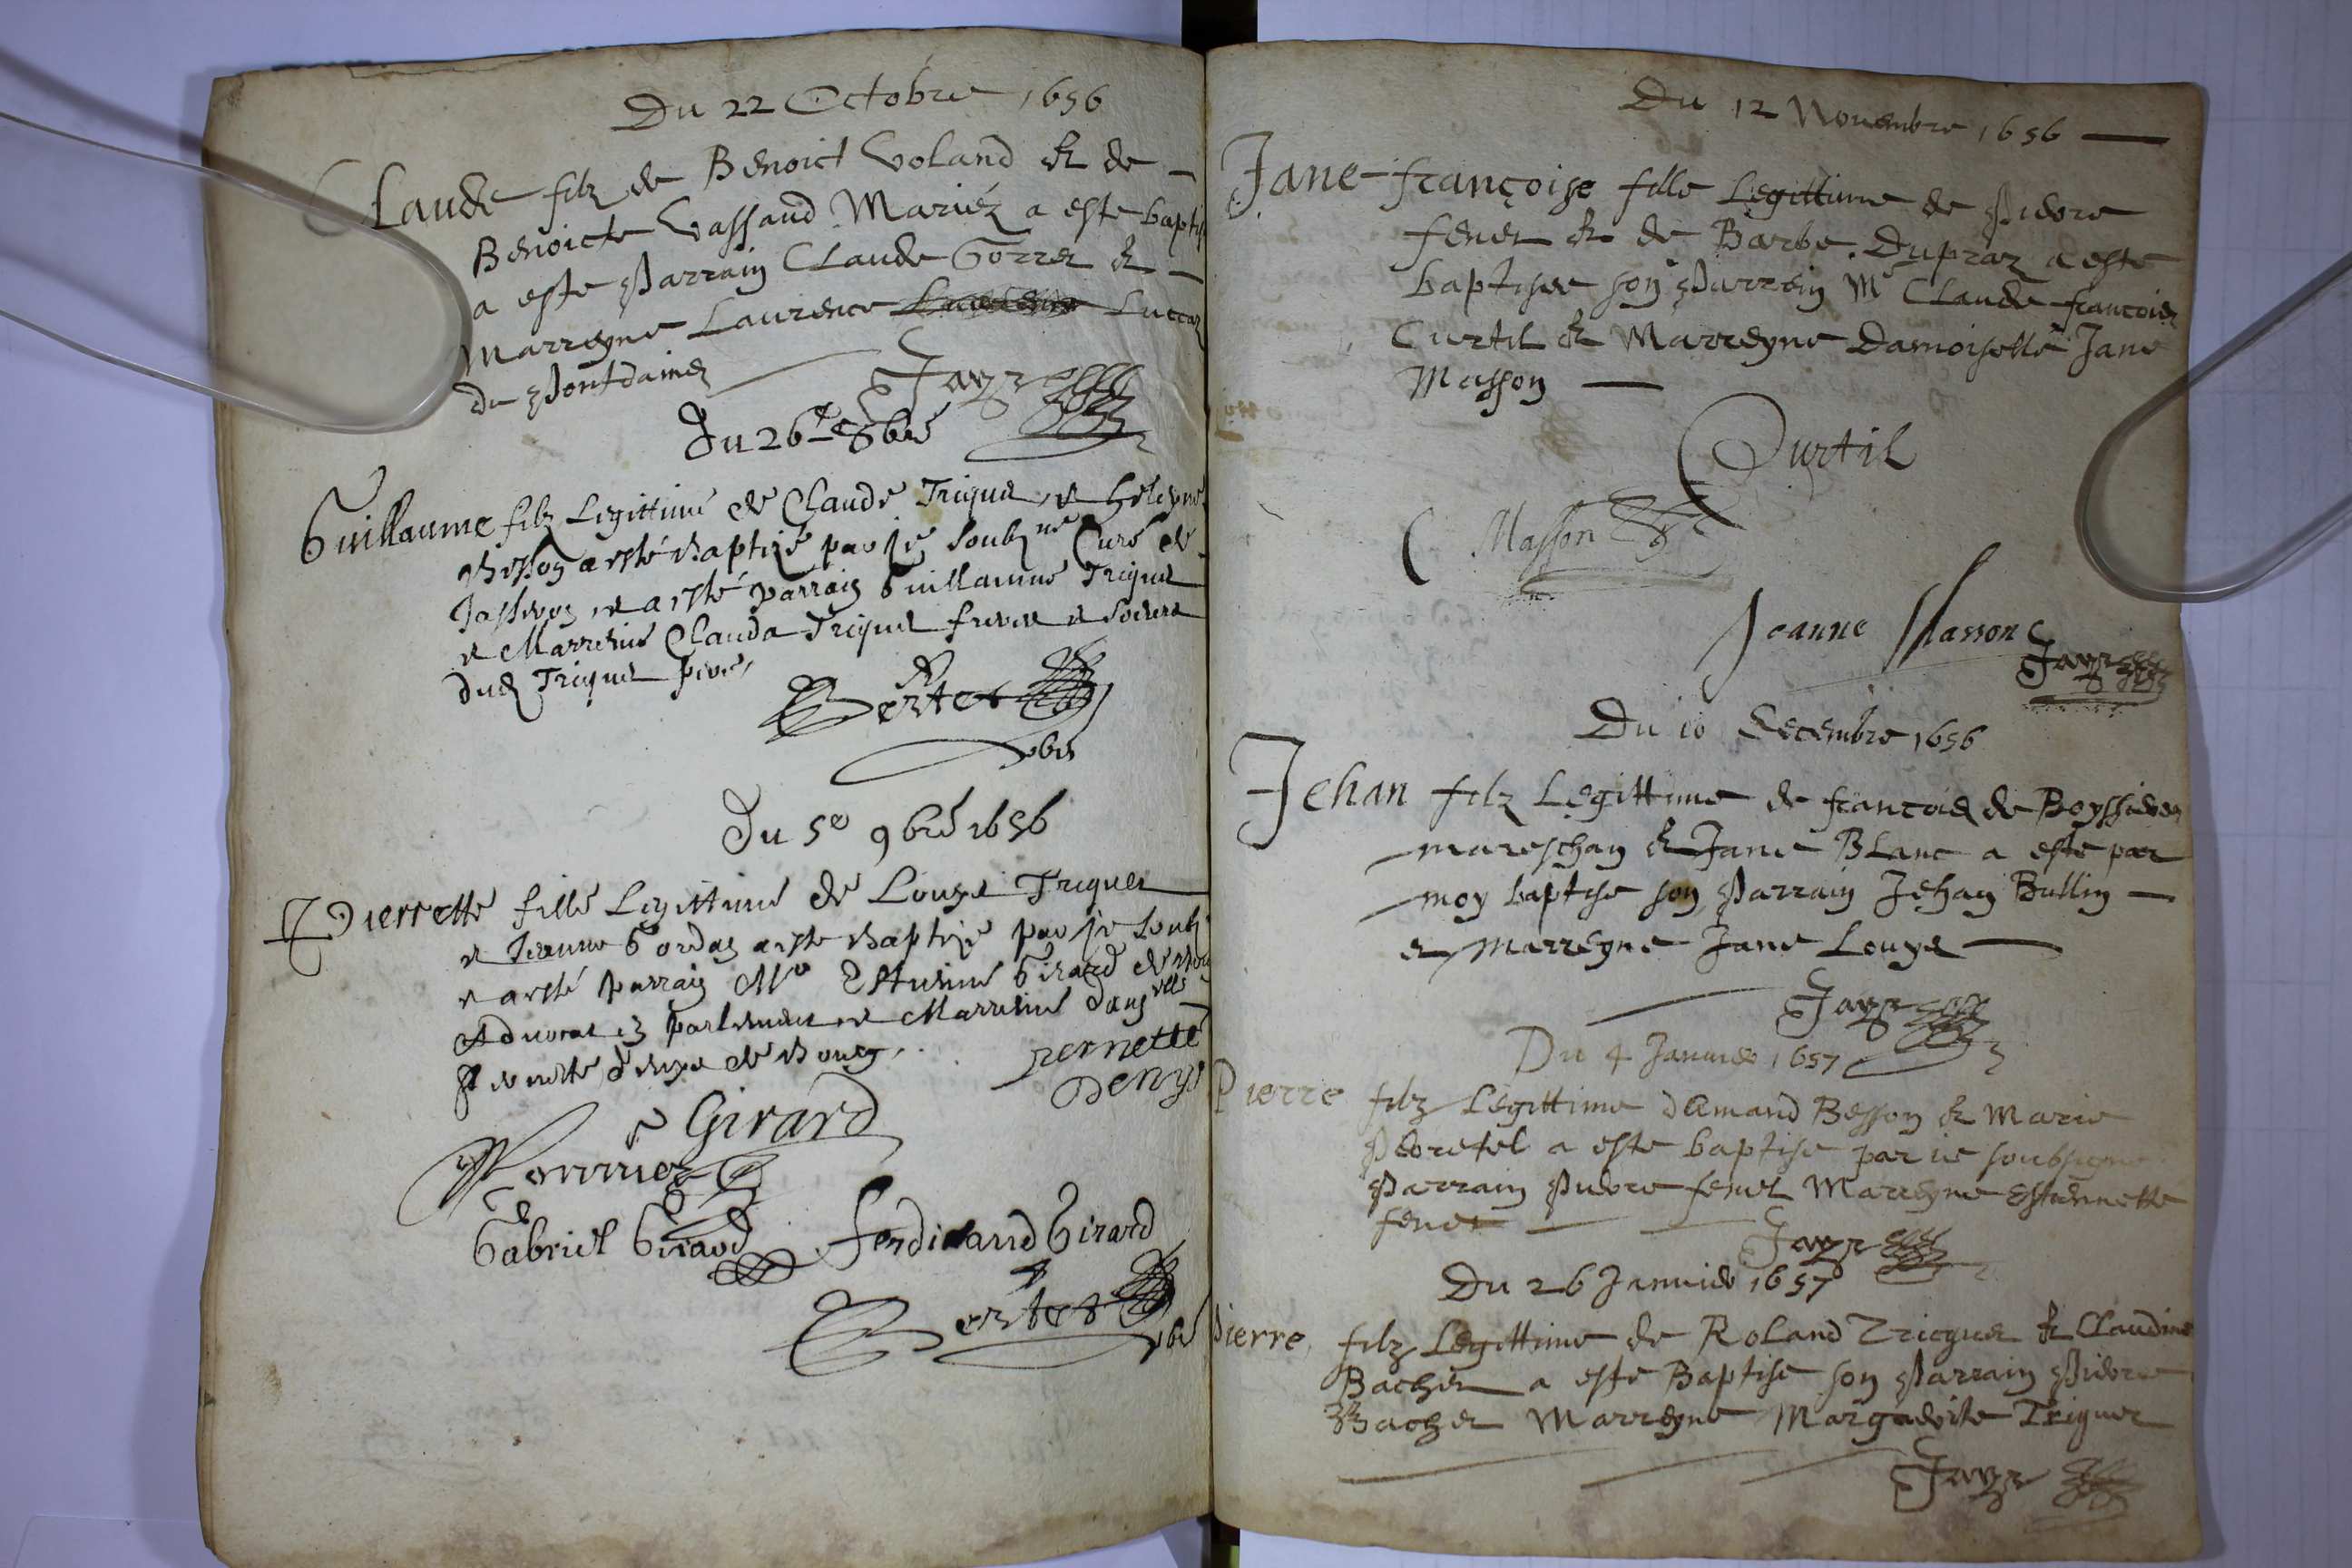 Du 22 Octobre 1656
Claude filz de Benoict Voland & de
Benoicte Vassaud Mariéz a este bapti
a este Parrain Claude Gorret &
Marreyne Laurence Luccaz
de Pontdainz
Jayr
Du 26e 8bre
Guillaume filz Legittime de Claude Triquet et heleyne
Besson a esté Baptizé par je soubzne Curé de
Jasseron et a esté parrain Guillaume Triquet
et Marreine Clauda Triquet frere et soeure
dud Triquet pere
Bertet
pbre
Du 5e 9bre 1656
Pierrette fille Legittime de Louys Triquet
et Jeanne Gordaz a este Baptizé par je soubz
et a esté parrain Mre Estienne Girard de
Advocat en parlement et Marreine dam elle
de Bourg
pernette
Denys
Girard
Gabriel Girard Ferdinand Girard
Bertet
pbre
Du 12 Novembre 1656
Jane françoise fille Legittime de Pierre
fenet & de Barbe Dupraz a este
baptisee son Parrein Mr Claude francois
Curtil & Marreyne Damoiselle Jane
Masson
Curtil
Masson
Jeanne Masson
Jayr
Du 10 Decembre 1656
Jehan filz Legittime de francois de Boyssieres
mareschan & Jane Blanc a este par
moy baptise son Parrain Jehan Bullin
et Marreyne Jane Louys
Jayr
Du 4 Janvier 1657
Pierre filz Legittime dAmand Besson & Marie
a este baptise par ie soubsigne
Parrain Pierre fenet Marreyne Estiennette
fenet
Jayr
Du 26 Janvier 1657
Pierre filz Legittime de Roland Tricquet & Claudine
Bachet a este Baptise son Parrain Pierre
Bachet Marreyne Margueritte Triquet
Jayr